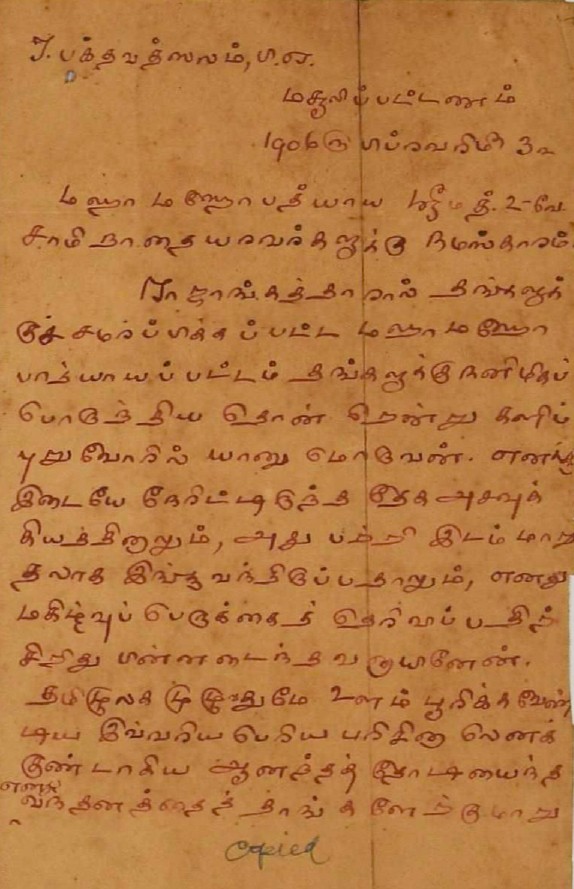 J. பக்தவத்ஸலம், பி.ஏ.
மசூலிப்பட்டணம்
1906௵ பிப்ரவரி௴ 3௨
மஹா மஹோபத்யாய ஸ்ரீமத். உ-வே.
சாமிநாதையரவர்களுக்கு நமஸ்காரம்.
ராஜாங்கத்தாரால் தங்களுக்
குச் சமர்ப்பிக்கப்பட்ட மஹாமஹோ
பாத்யாயப் பட்டம் தங்களுக்கு நனிமிகப்
பொருந்திய தொன் றென்று களிப்
புறுவோரில் யானு மொருவன். எனக்கு
இடையே நேரிட்டிருந்த தேக அசவுக்
கியத்தினாலும், அது பற்றி இடம் மாறு
தலாக இங்கு வந்திருப்பதாலும், எனது
மகிழ்வுப் பெருக்கைத் தெரிவிப்பதிற்
சிறிது பின்னடைந்தவ னாயினேன்.
தமிழுலக முழுதுமே உளம் பூரிக்கவேண்
டிய இவ்வரிய பெரிய பரிசினா லெனக்
குண்டாகிய ஆனந்தத் தோடியைந்த
எனது
வந்தனத்தைத் தாங்க ளேற்குமாறு
copied